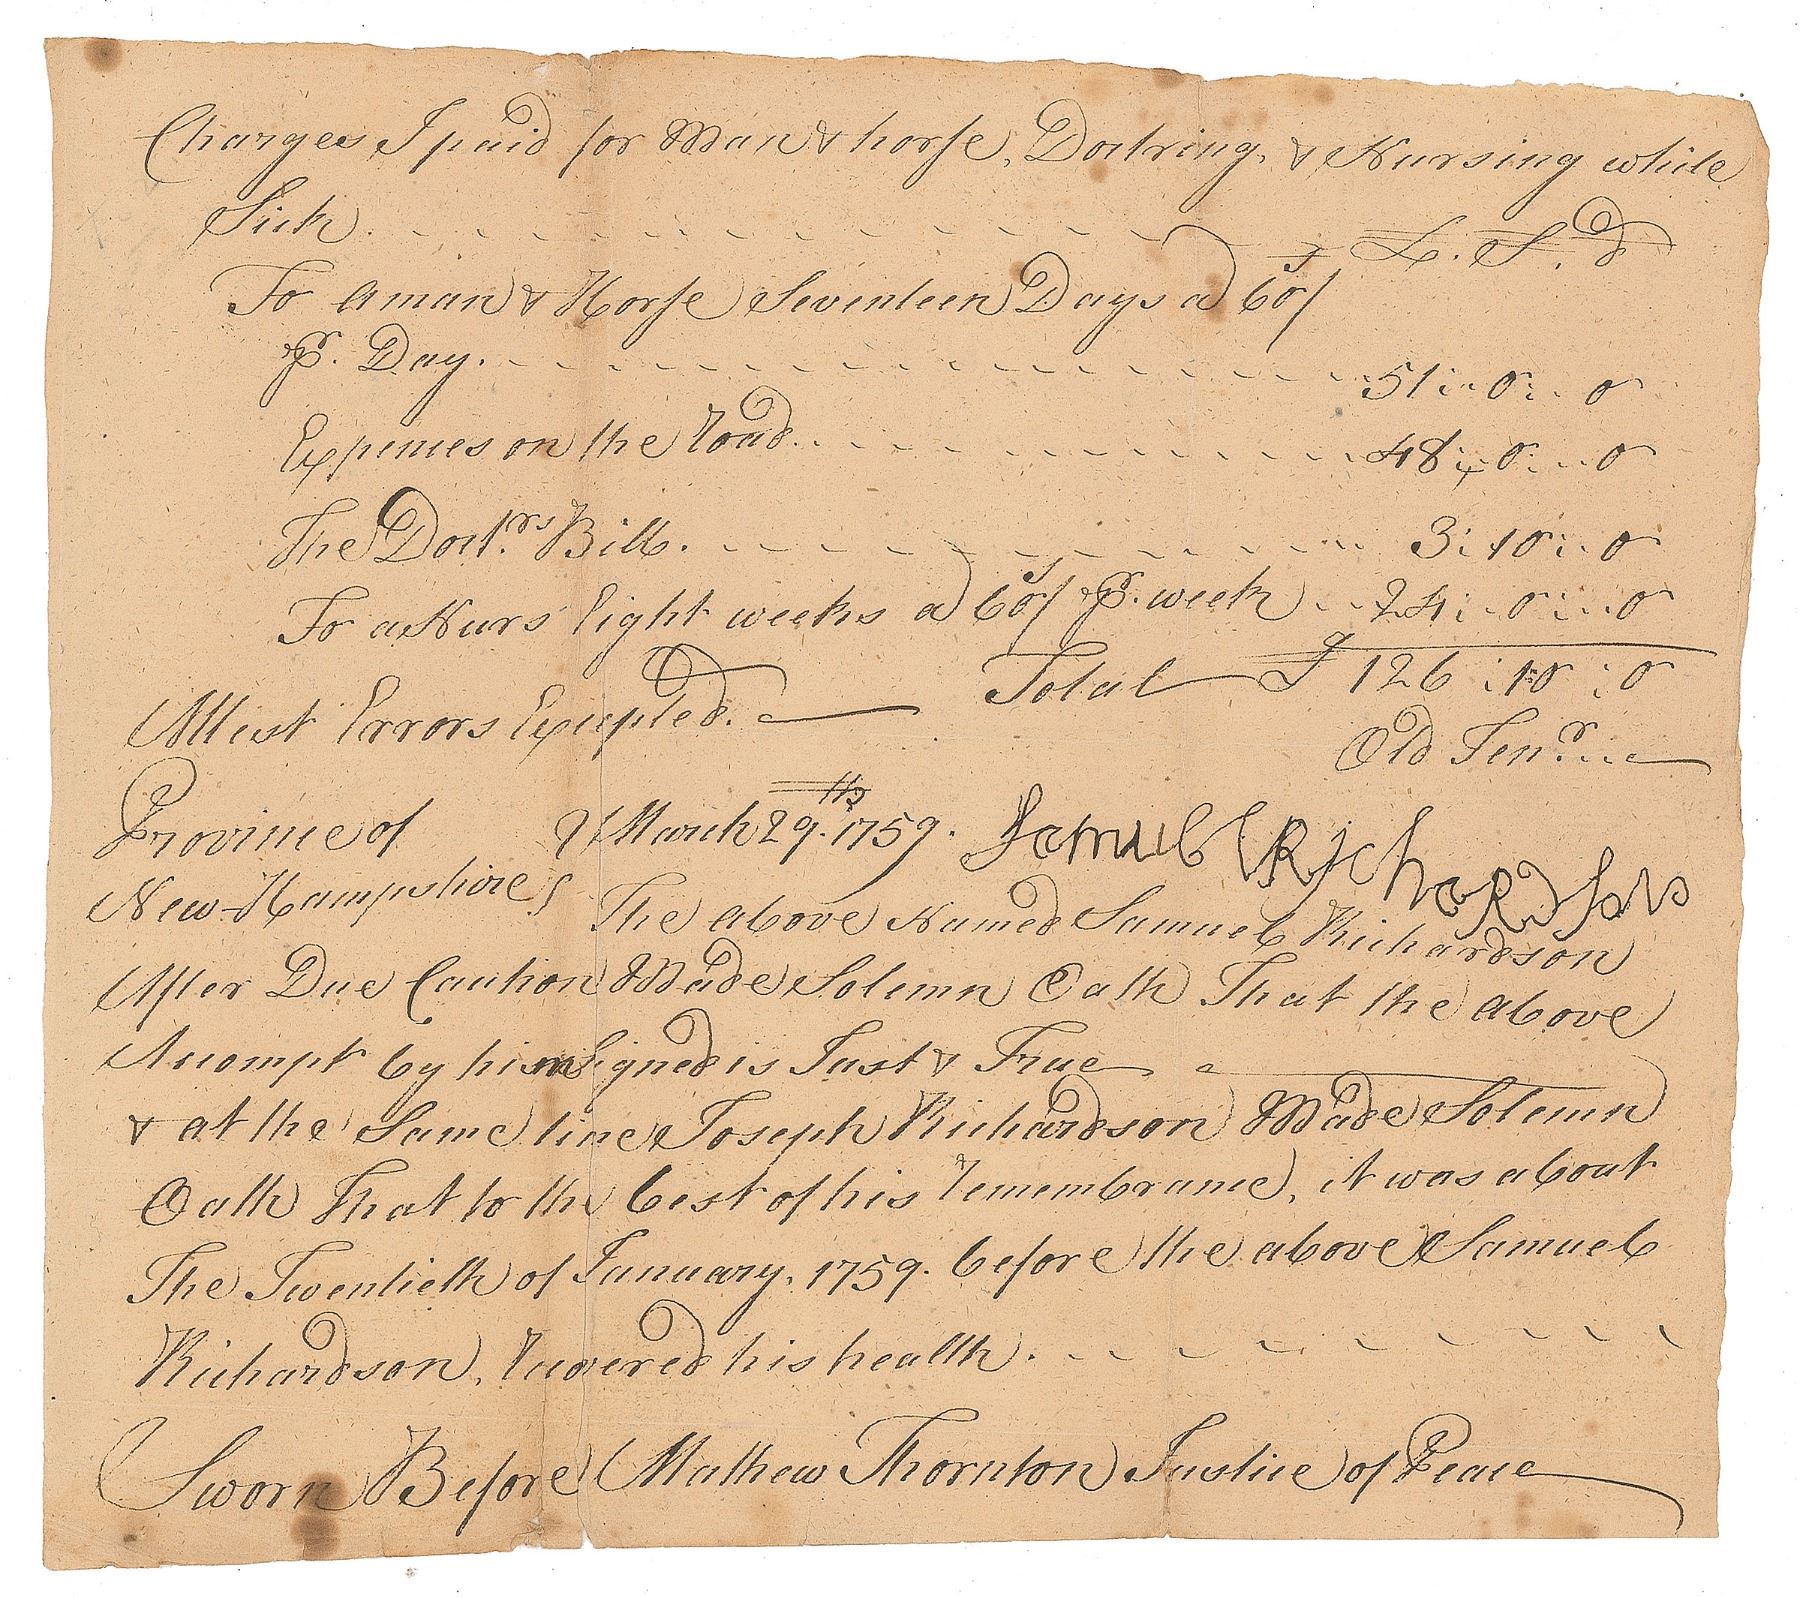 Charges I paid for Man & horse, Doctring, & Nursing while
Sick. £. S. d
To a man & Horse Seventeen Days a 60s/
Pr. Day. 51: 0: 0
Expences on the road. 48: 0: 0
The Doctrs Bill. 3: 10: 0
To a Nurs Eight weeks a 60s/ Pr. week 24: 0: 0
Attest Errors Excepted. Total £ 126: 10: 0
Old Tenr.
Province of } March 29th. 1759. Samuel Richardson
New-Hampshire } The above Named Samuel Richardson
After Due Caution Made Solemn Oath That the above
Accompt by him Signed is Just & True
& at the Same time Joseph Richardson Made Solemn
Oath That to the best of his remembrance, it was about
The Twentieth of January, 1759. before the above Samuel
Richardson, recovered his health.
Sworn Before Mathew Thornton Justice of Peace